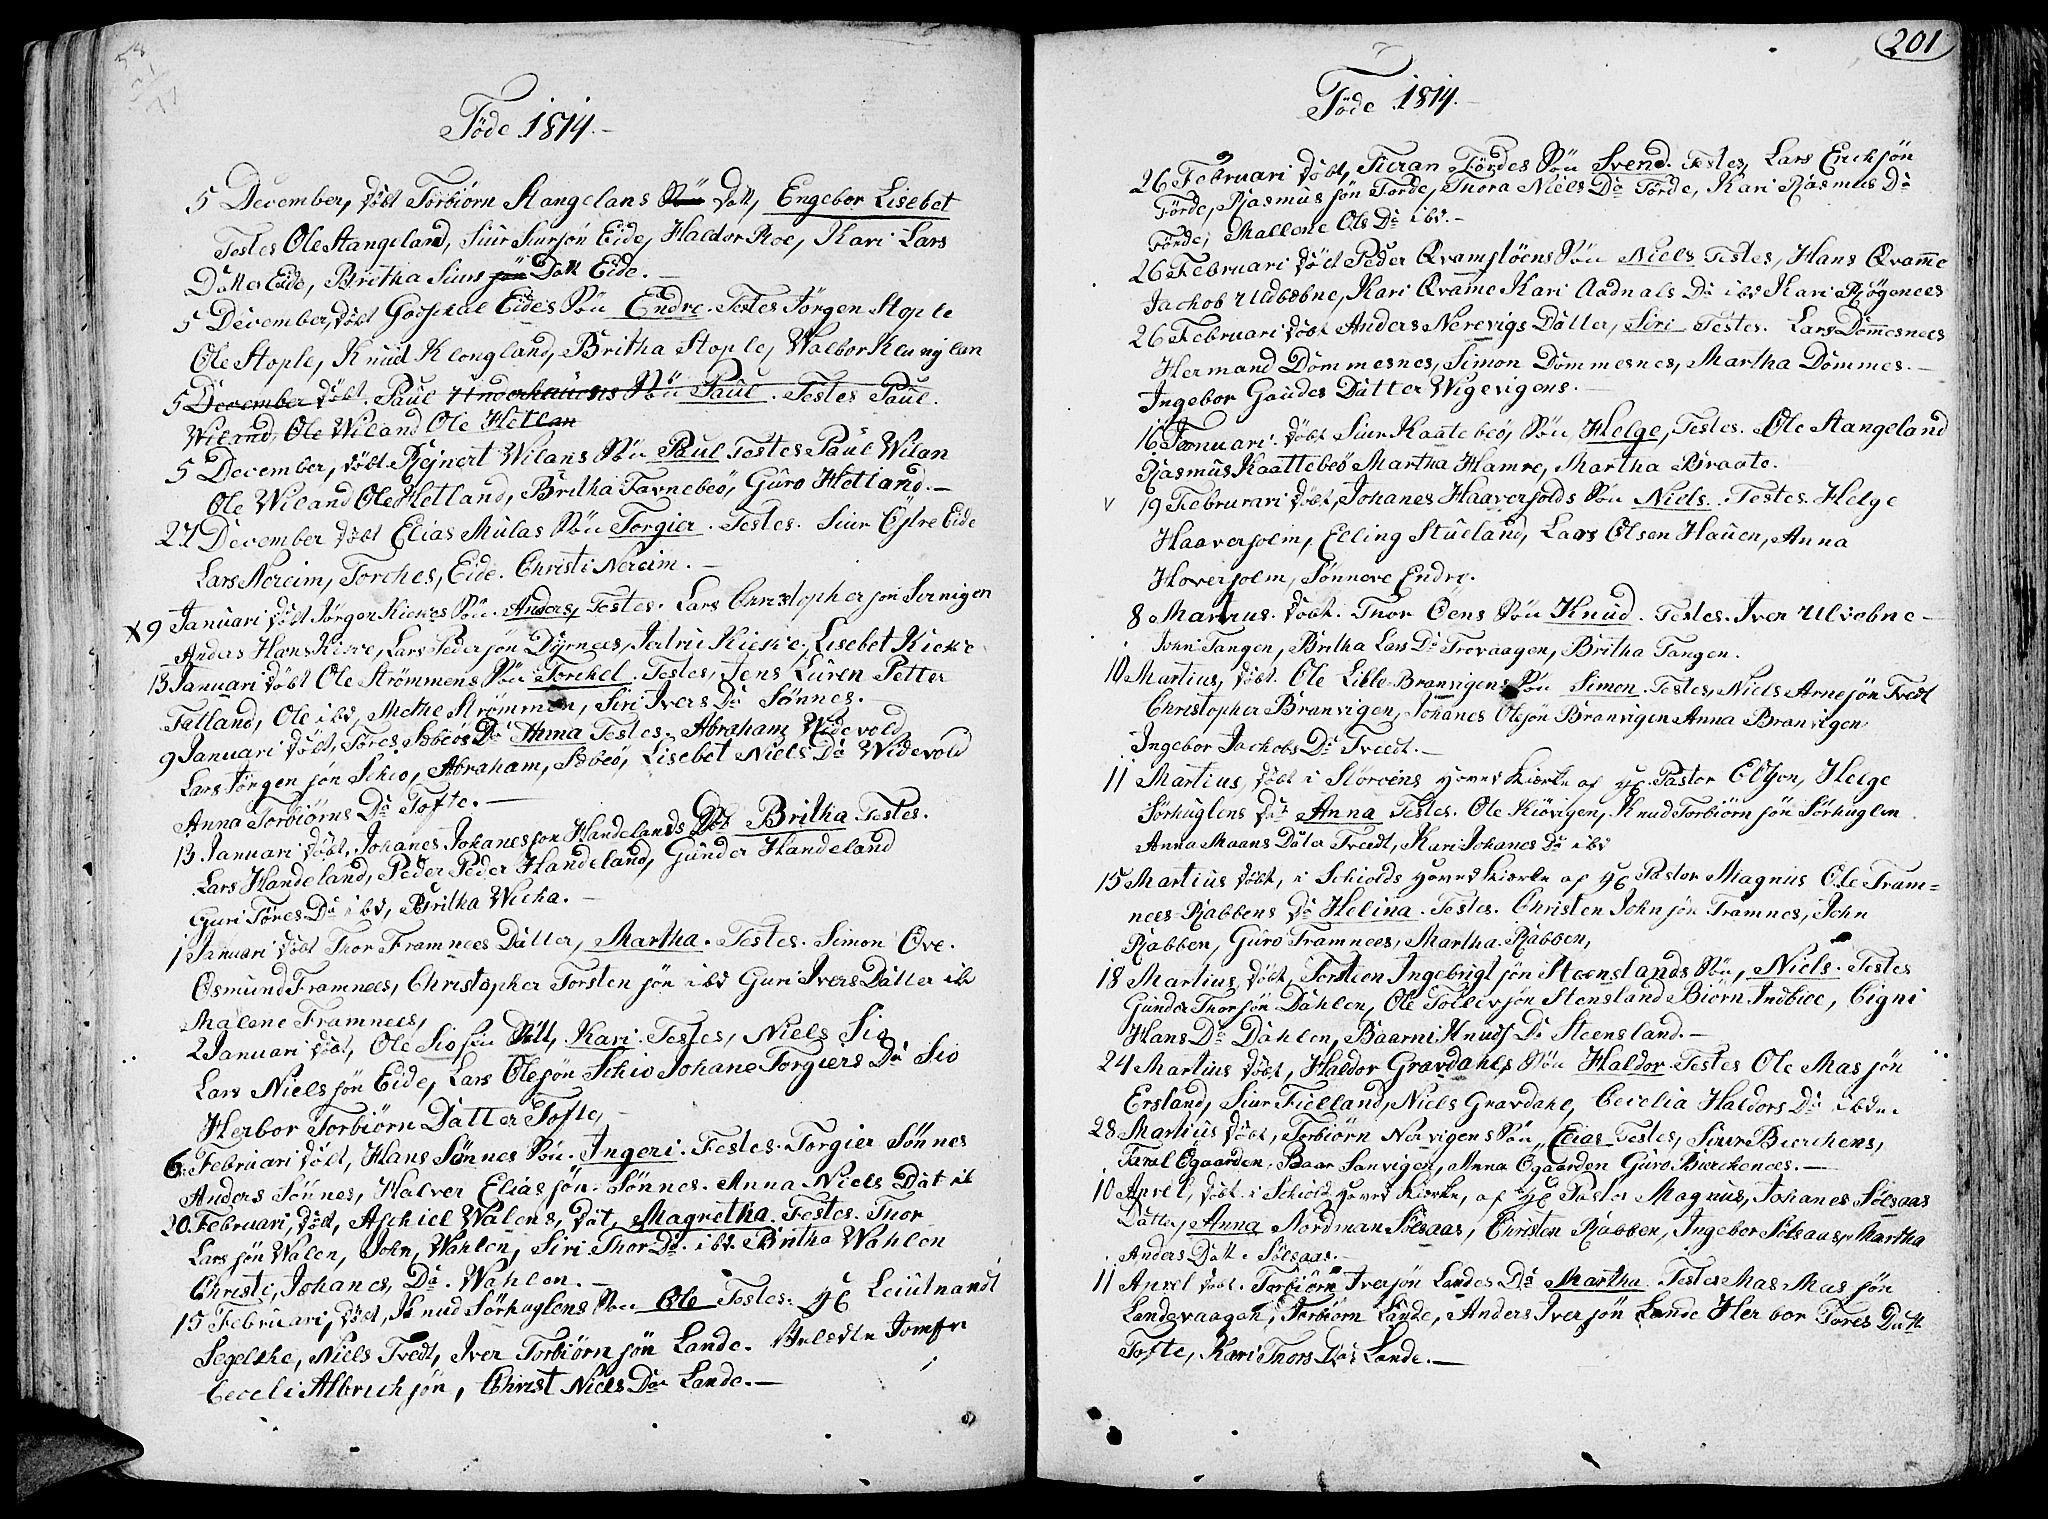 Töde 1814.-
5 December, döbt Torbiörn Stangelans Sön Datt, Engebor Lisebet
Testes Ole Stangeland, Siur Siursön Eide, Haldor Roe, Kari Lars
Datter Eide, Britha Siurs sön Datt Eide.-
5 December, döbt Eides Sön Endre. Testes Jörgen Stople
Ole Stople, Knud Klongland, Britha Stople, Walbor Klunglan
5 December döbt. Paul Sön Paul. Testes Paul.
Wiland, Ole Wiland Ole Hetlan
5 December, döbt Rejnert Wilans Sön Paul Testes Paul Wilan
Ole Wiland Ole Hetland, Britha Tavneboe, Guro Hetland.-
27 December döbt Elias Mulas Sön Torgier. Testes. Siur Östre Eide
Lars Nereim, Torches, Eide. Christi Nereim.-
X 9 Januari döbt Jörgen Kiekes Sön. Anders, Testes. Lars Christophersön
Anders Hans Lars Pedersön Dyrnees, Kieke, Lisebet Kieke
13 Januari döbt Ole Strömmens Sön Torchel. Testes, Jens Luren Petter
Fatland, Ole ibd, Methe Strömmen, Siri Ivers Da Sönnes.-
9 Januari döbt, Töres Da Anna Testes. Abraham Widevold
Lars Jörgensön Schio, Abraham, Lisebet Niels Da Widevold
Anna Torbiörns Da Tofte.-
13 Januari döbt, Johanes Johanessön Handelands Dat Britha Testes.
Lars Handeland, Peder Peder Handeland, Gunder Handeland
Guri Töres Da ibd, Britha Wicha.-
1 Januari döbt Thor Framnees Datter, Martha. Testes. Simon Öve.
Osmund Framnees, Christopher Torstensön ibd Guri Ivers Datter ib
Malene Framnees,
2 Januari döbt, Ole Dat, Kari. Testes, Niels Sio
Lars Nielssön Eide, Lars Olesön Schio Johane Torgiers Da Sio
Herbor Torbiörn Datter Tofte,
6 Februari döbt, Hans Sönnes Sön. Ingeri. Testes. Torgier Sönnes
Anders Sönnes, Halver Eliassön. Sönnes. Anna Niels Dat ib
20 Februari, döbt, Aschiel Walens, Dat, Magretha. Testes. Thor
Larssön Walen, John, Wahlen, Siri Thor Da. ibd. Britha Wahlen
Christi, Johanes, Da. Wahlen.-
15 Februari, döbt, Knud Sörhuglens Sön Ole Testes. Leiutnandt
Segelche, Niels Tvedt, Iver Torbiörnsön Lande. Jomfr
Ceceli Albrichsön, Christ Niels Da Lande.-
201
Töde 1814.-
26 Februari döbt, Tieran Tördes Sön Svend. Testes, Lars Erichsön
Törde, Rasmussön Torde, Thora Niels Da Torde, Kari Rasmus Da
Törde, Mallene Ols Da ibd.-
26 Februari döbt Peder Qvamslöens Sön Niels Testes, Hans Qvamme
Jachob Udbæbne, Kari Qvamme Kari Aadnals Da ibd Kari Rögenees
26 Februari döbt Anders Nerevigs Datter, Siri Testes. Lars Dömmesnees
Hermand Dömmesnes, Simon Dömmesnes, Martha Dömmes.-
Ingebor Gaudes Datter Wigevigens.-
16 Januari. döbt Siur Kaateboe Sön Helge, Testes. Ole Stangeland
Rasmus Kaatteboe Martha Hamre, Martha Braate.
v 19 Februrari döbt, Johanes Haaverholds Sön Niels. Testes. Helge
Haaverholm, Elling Stueland, Lars Olsen Hauen, Anna
Hoverholm, Sönneve Endre.
8 Martius. döbt. Thor Öens Sön Knud. Testes. Iver Ulvebne-
John Tangen, Britha Lars Da Trovaagen, Britha Tangen.
10 Martius, döbt. Ole Lille-Branvigens Sön Simon. Testes, Niels Arnesön Tvedt
Christopher Branvigen, Johanes Olesön Branvigen Anna Branvigen
Ingebor Jachobs Da Tvedt.-
11 Martius döbt i Störöens Hoved Kierke af Pastor Helge
Sörhuglens Da Anna Testes. Ole Kiövigen, Knud Torbiörnsön Sörhuglen
Anna Maans Dater Tvedt, Kari Johanes Da ibd
15 Martius döbt, i Schiolds Hoved Kierke af Pastor Magnus Ole Fram=
nees-Rabbens Da Helina. Testes. Christen Johnsön Framnes, John
Rabben, Guro Framnees, Martha Rabben,
18 Martius, döbt, Torsteen Ingebrigtsön Steenslands Sön, Niels. Testes
Gunder Thorsön Dahlen, Ole Tollevsön Stensland Biörn Indbiœ, Cigni
Hans Da Dahlen, Baarni Knuds Da Steensland.-
24 Martius döbt, Haldor Gravdahls Sön Haldor. Testes Ole Massön
Ersland, Siur Fielland, Niels Gravdahl, Cecelia Haldors Da ibd.
28 Martius döbt, Torbiörn Norvigens Sön, Elias Testes, Siur Bierchens,
Taral Ögaarden, Baar Sanvigen, Anna Ögaarden Guro Bierchenees.-
10 Aprel, döbt i Schiold Hoved Kierke, af Pastor Magnus, Johanes Sölsaas
Datter, Anna Nordman Sölsaas, Christen Rabben, Ingebor Sölsaas, Martha
Anders Datt. Sölsaas.-
11 Aprel döbt. Torbiörn Iversön Landes Da Martha. Testes Mas Massön
Landevaagen, Torbiörn Lande, Anders Iversön Lande Herbor Tores Datt
Tofte, Kari Thors Da Lande.-